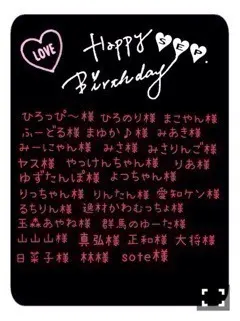 LOVE
Happy SEP.
Birthday
ひろっぴ〜様 ひろのり様 まこやん様
ふーどる様 まゆか♪様 みあき様
みーにゃん様 みさ様 みさりんご様
ヤス様 やっけんちゃん様 りあ様
ゆずたんぽ様 よつちゃん様
りっちゃん様 りんたん様 愛知ケン様
るちりん様 逸材かわむっちょ様
玉森あやね様 群馬のゆーた様
山山山様 真弘様 正和様 大将様
日菜子様 林様 sote様